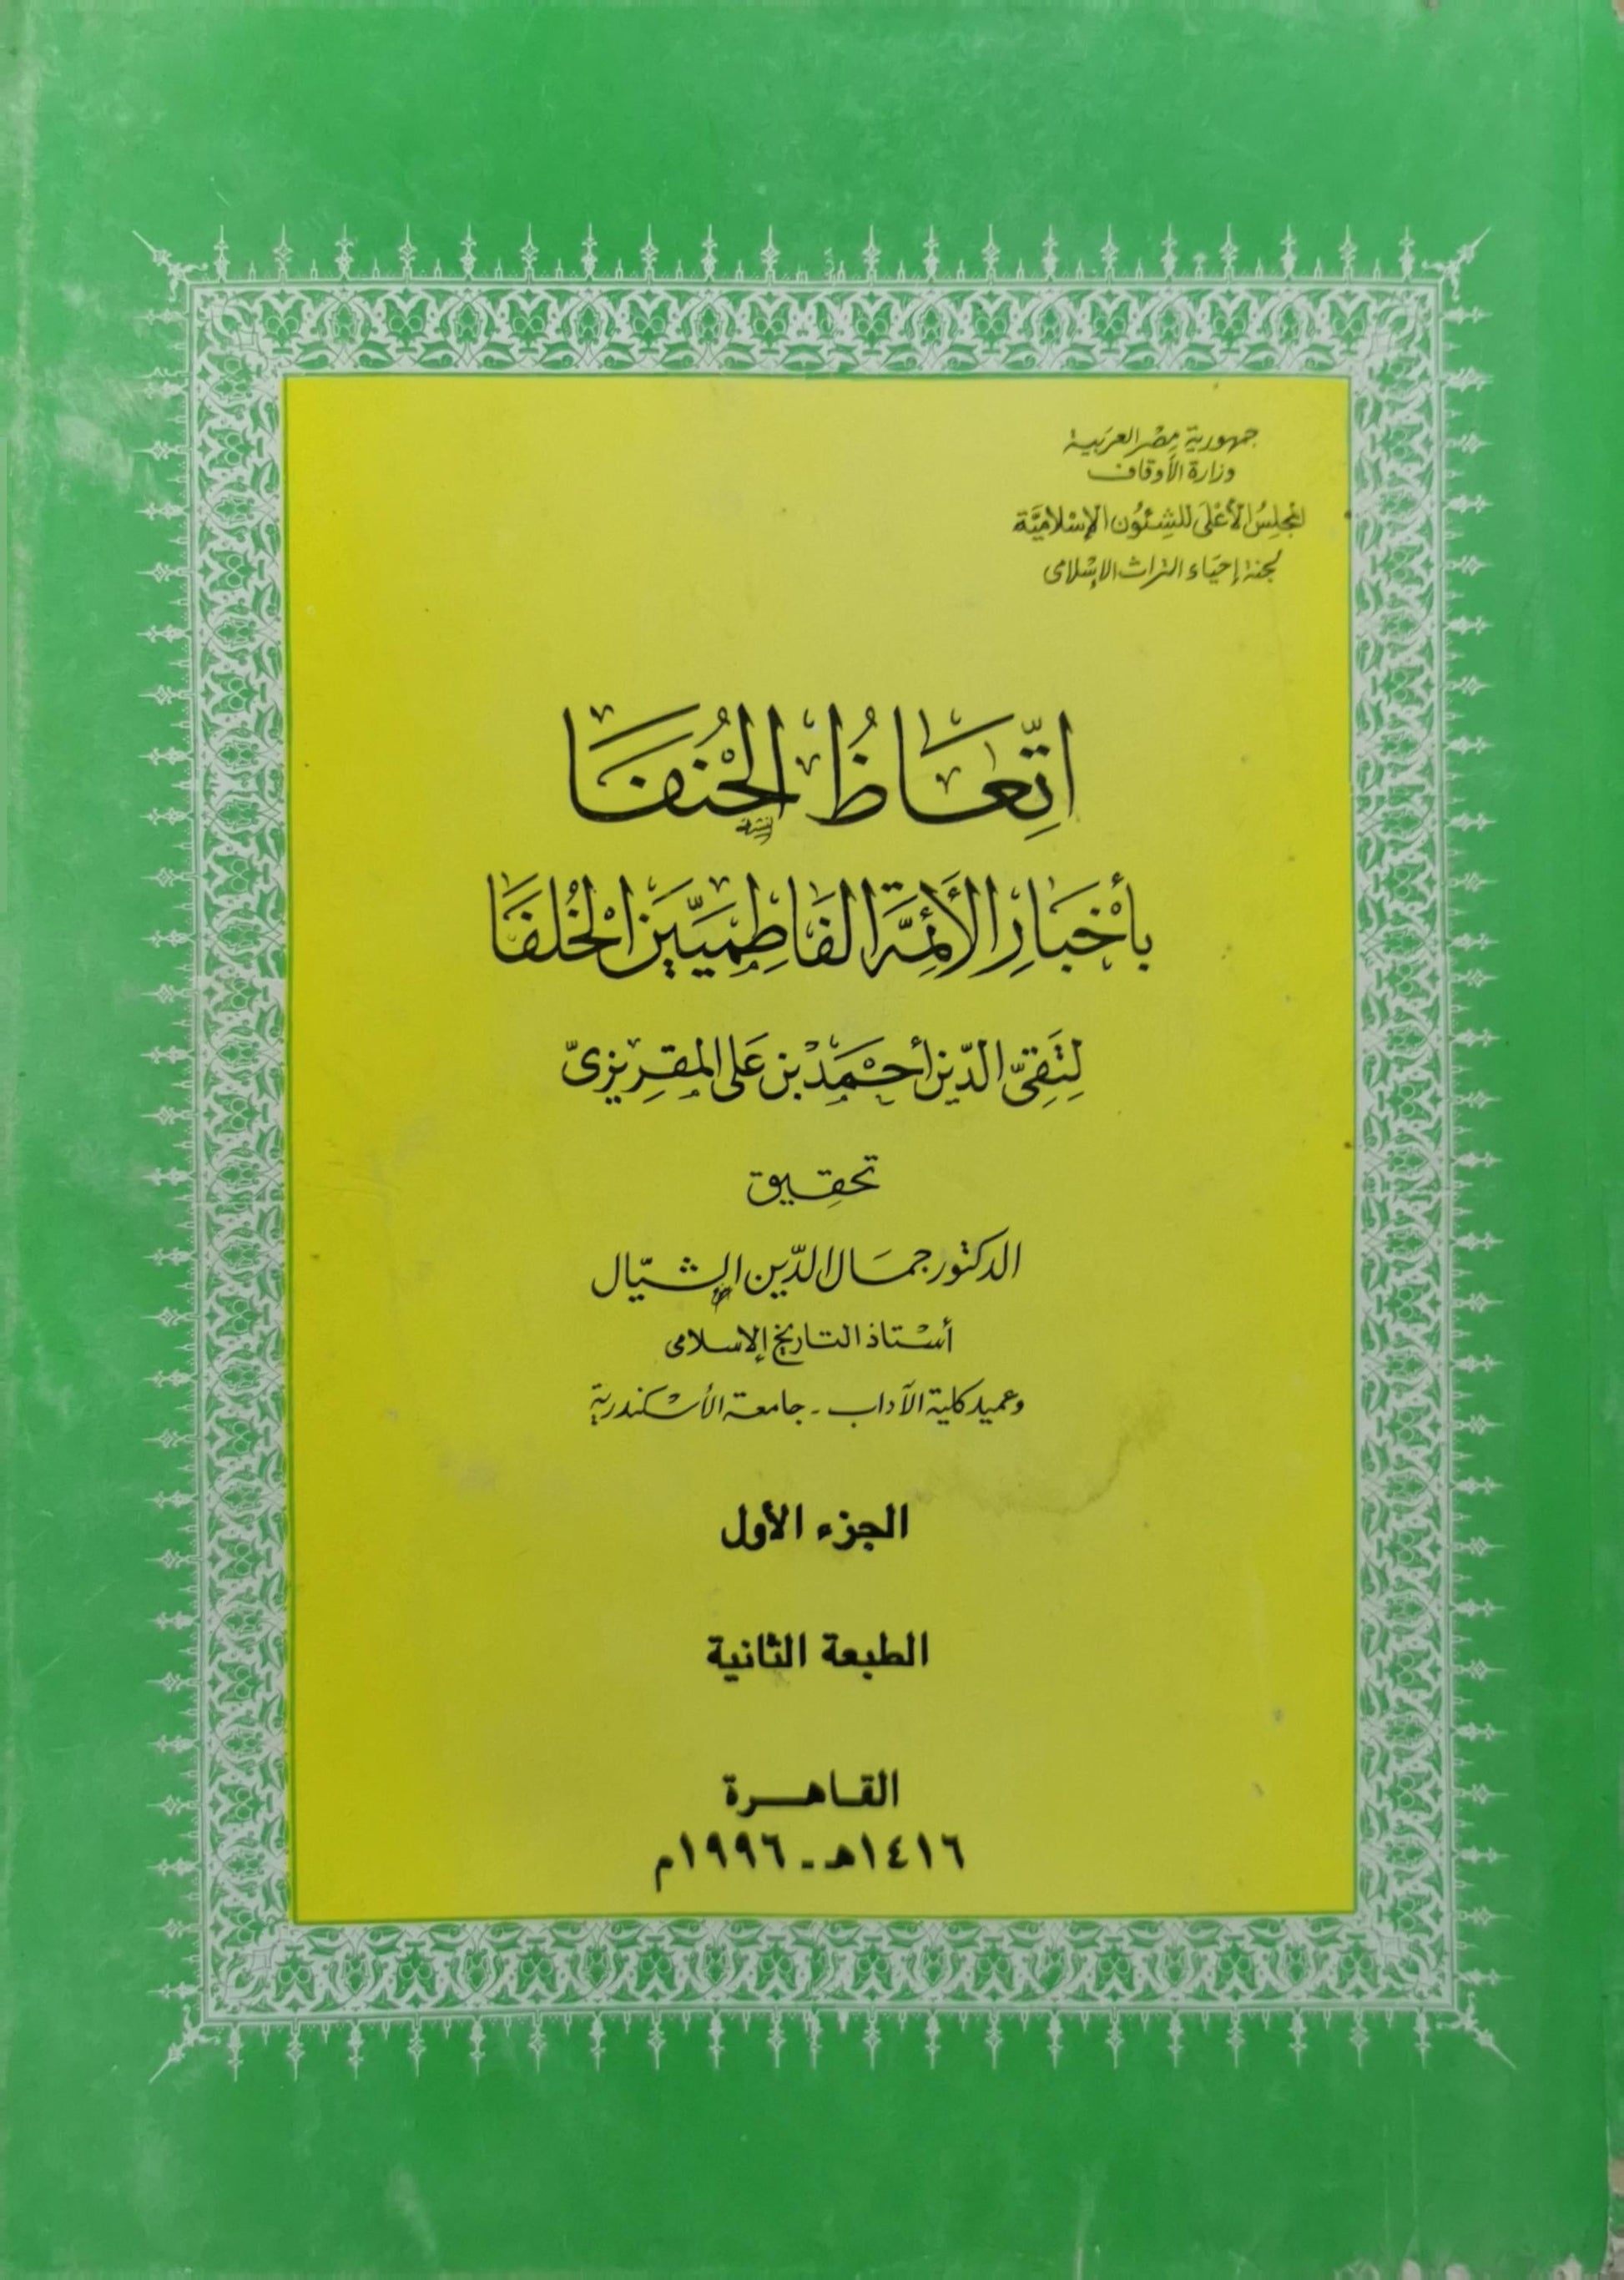 جمهورية مصر العربية
وزارة الأوقاف
المجلس الأعلى للشئون الإسلامية
لجنة إحياء التراث الإسلامى
اتِّعَاظُ الحُنَفَا
بِأَخْبَارِ الأَئِمَّةِ الفَاطِمِيِّينَ الخُلَفَا
لِتَقِىِّ الدِّين أَحْمَد بن عَلى المقرِيزىّ
تحقيق
الدكتور جمال الدّين الشيّال
أستاذ التاريخ الإسلامى
وعميد كلية الآداب - جامعة الأسكندرية
الجزء الأول
الطبعة الثانية
القاهرة
١٤١٦هـ - ١٩٩٦م